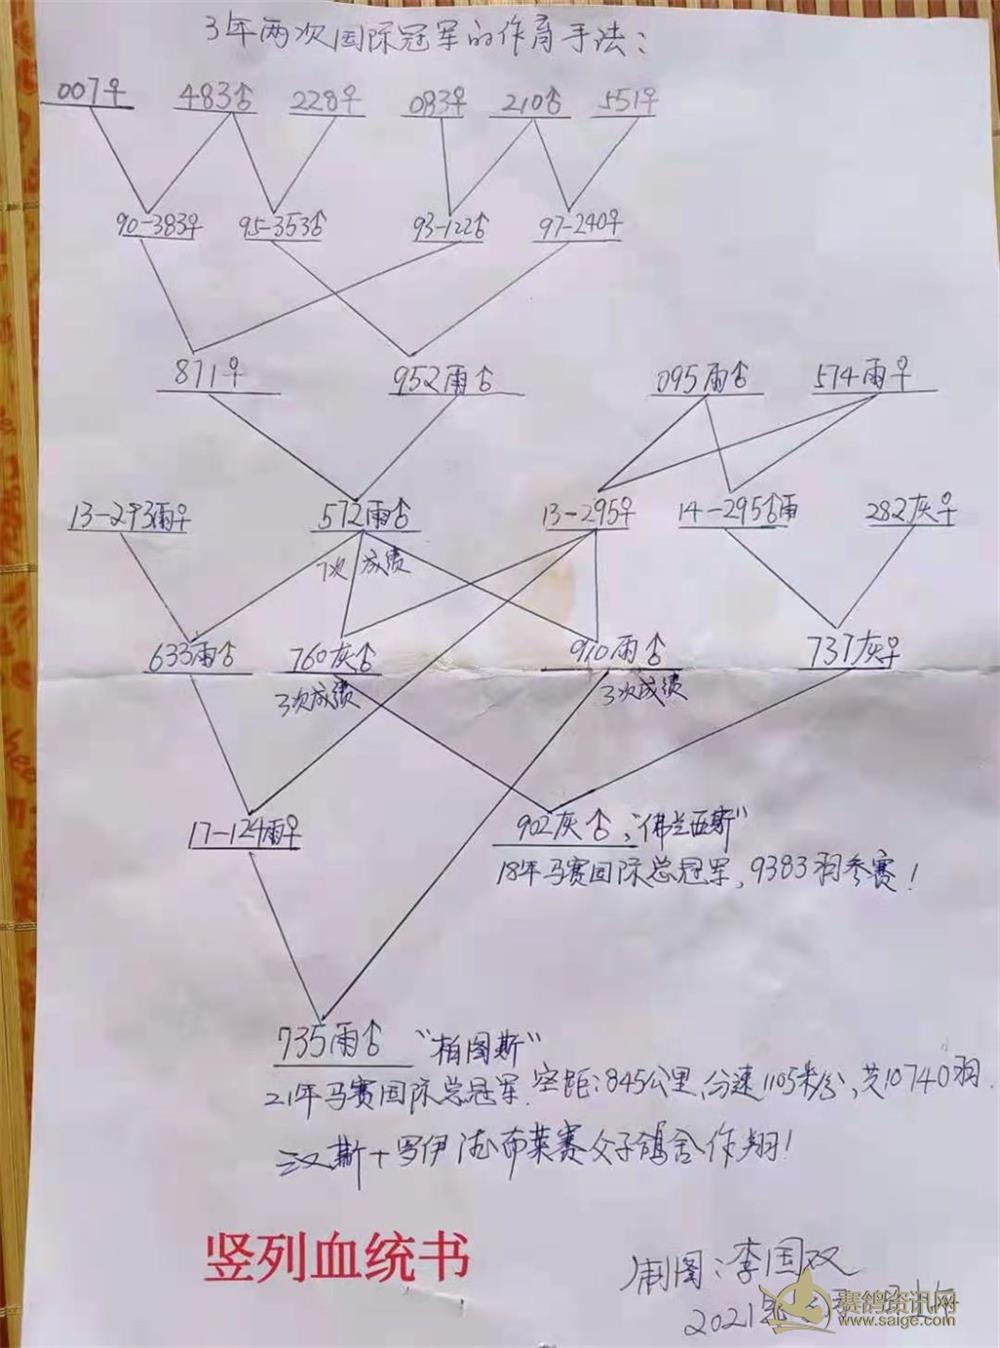 3年两次国际冠军的作育手法：
007♀ 483♂ 228♀ 083♀ 210♂ 551♀
90-383♀ 95-353♂ 93-122♂ 97-240♀
871♀ 952雨♂ 095雨♂ 574雨♀
13-293雨♀ 572雨♂ 13-295♀ 14-295♂雨 282灰♀
7次成绩
633雨♂ 760灰♂ 910雨♂ 737灰♀
3次成绩 3次成绩
17-124雨♀ 902灰♂，“佛兰西斯”
18年马赛国际总冠军，9383羽参赛！
735雨♂ “柏图斯”
21年马赛国际总冠军.空距：845公里，分速1105米/分，共10740羽.
汉斯+罗伊 布莱赛父子鸽舍作翔！
竖列血统书
制图：李国双
2021年
赛鸽资讯网
www.saige.com